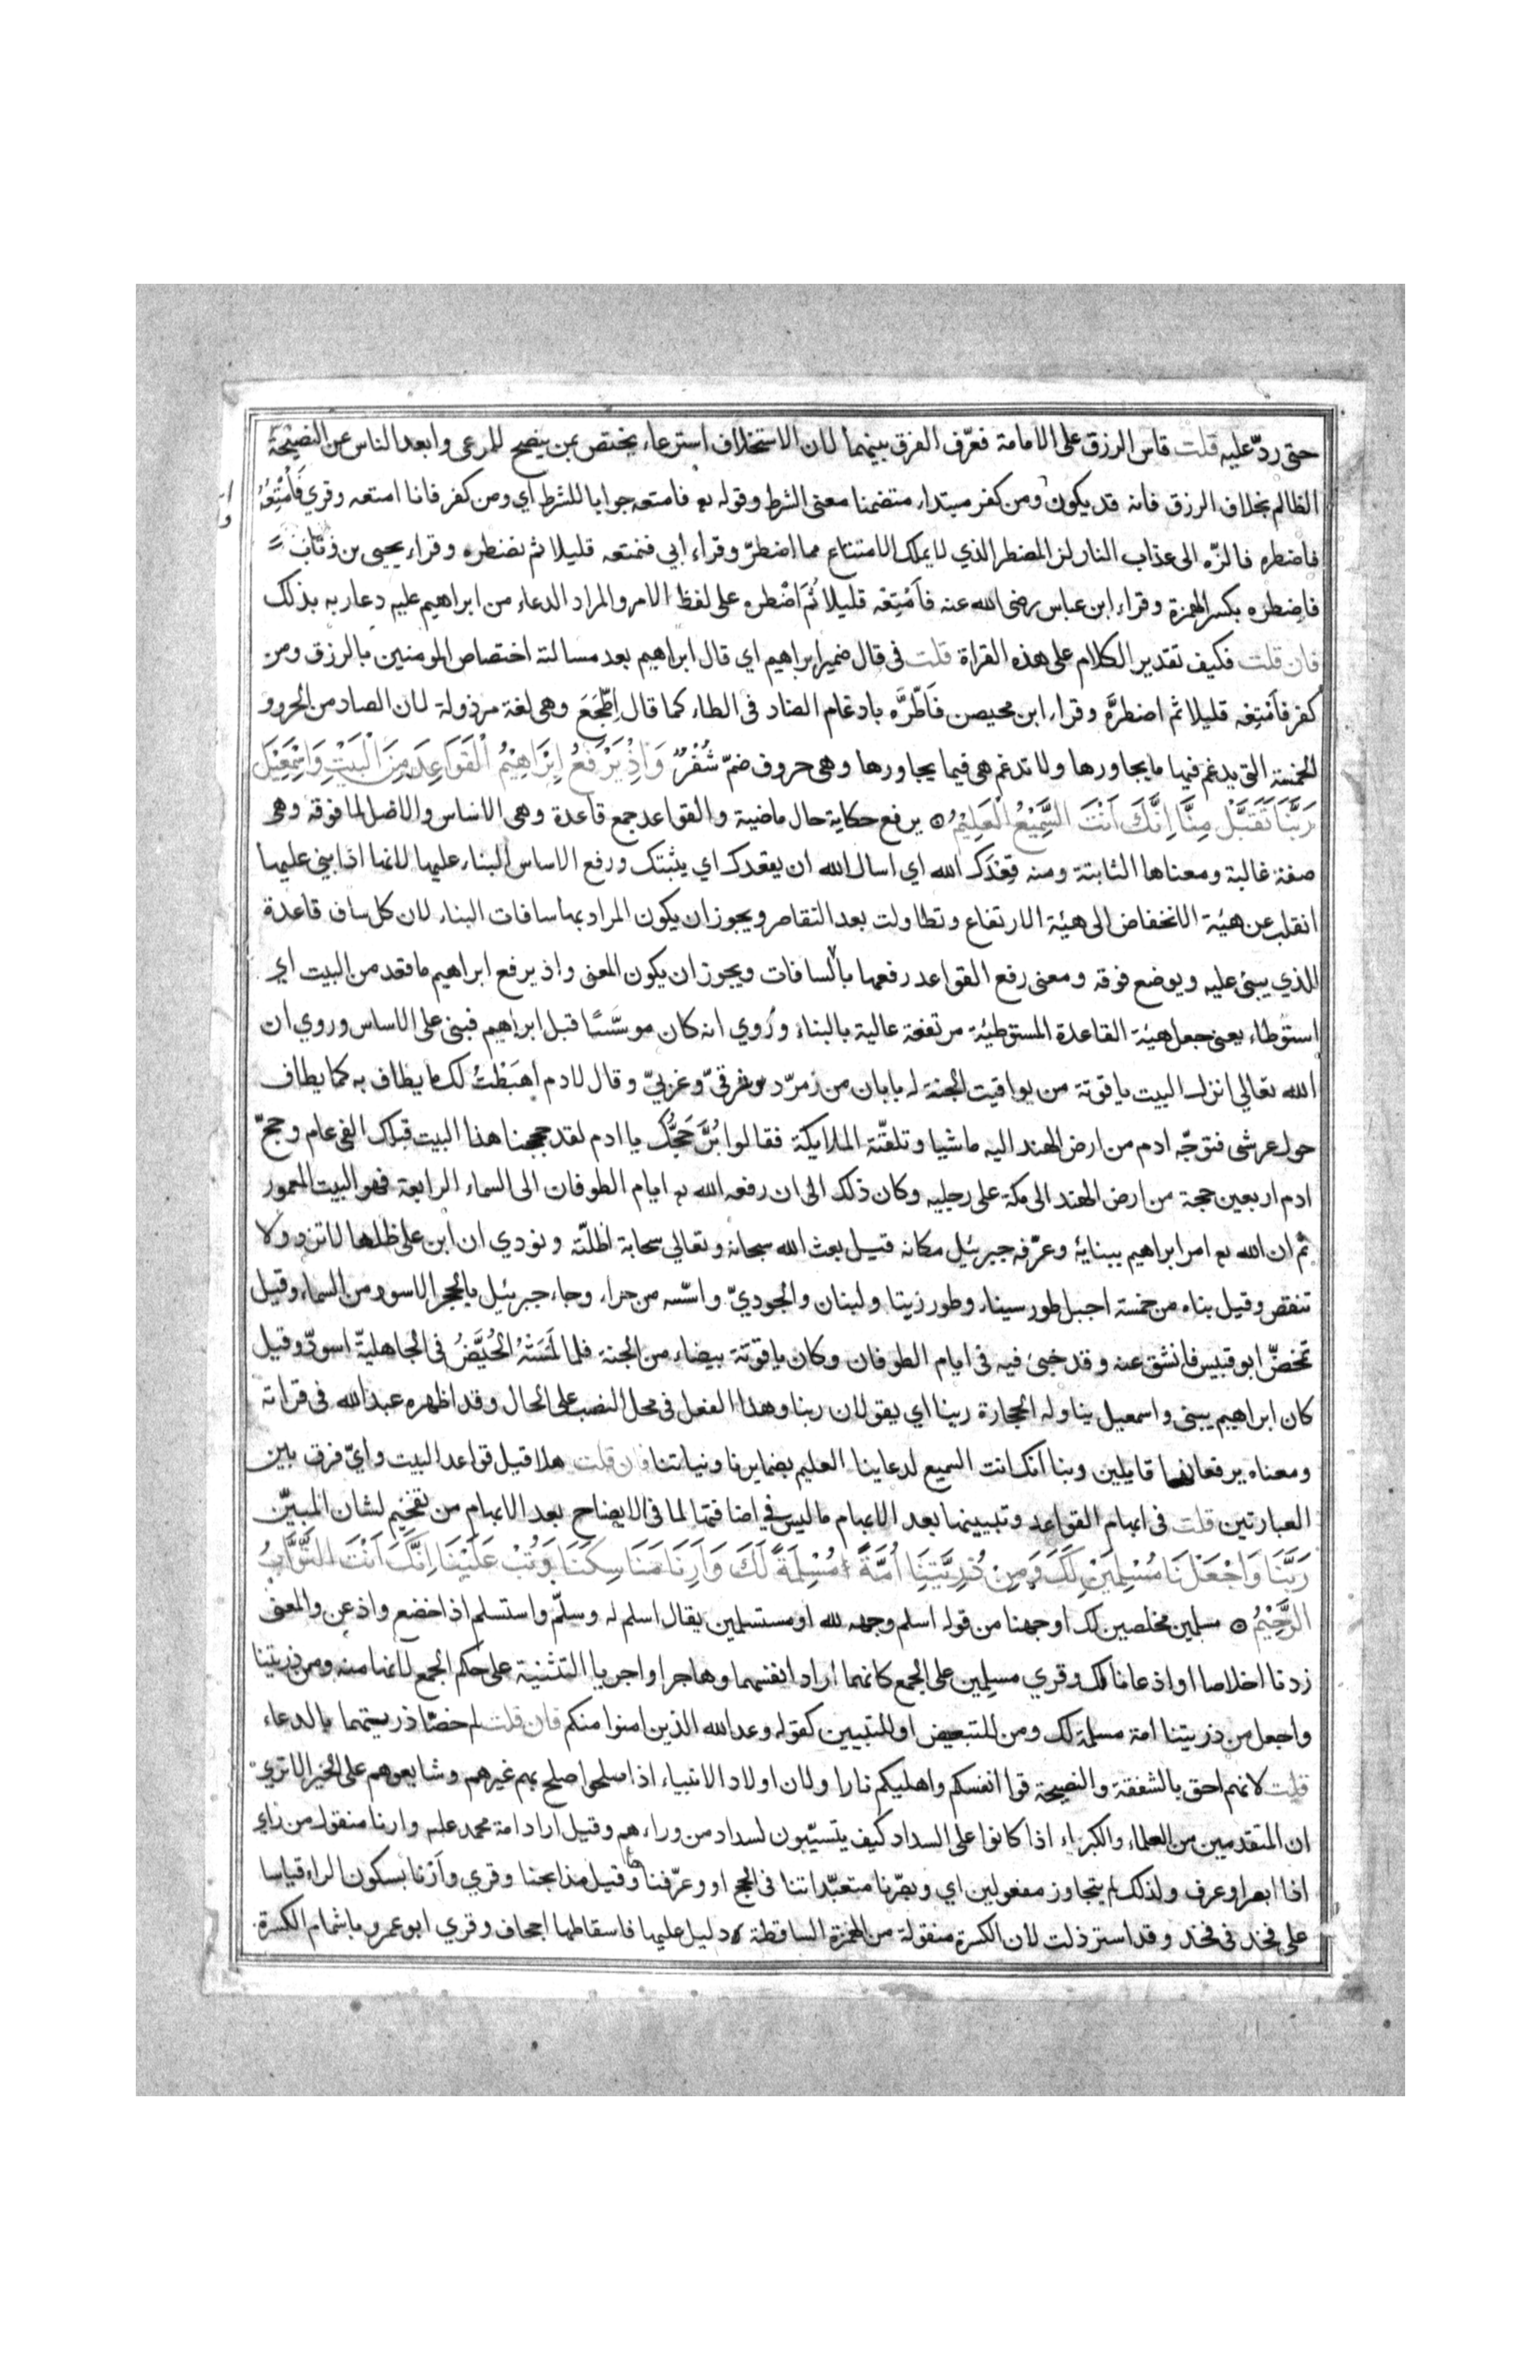 حتى ردّ عليه قلت قاس الرزق على الامامة فعرّف الفرق بينهما لان الاستخلاف استرعاء يختص بمن ينصح للمرعى وابعد الناس عن النصيحة
الظالم بخلاف الرزق فانه قد يكون ومن كفر مبتداء متضمنا معنى الشرط وقوله تع فامتعه جوابا للشرط اي ومن كفر فانا امتعه وقري فَأُمْتِعُهُ
فاضطره فالزّه الى عذاب النار لز المضطر الذي لا يملك الامتناع مما اضطرّ وقراء ابي فنمتعه قليلا ثم نضطره وقراء يحيى بن وثاب
فاضطره بكسر الهمزة وقراء ابن عباس رضى الله عنه فاَمْتِعْه قليلا ثُمَّ اضْطره على لفظ الامر والمراد الدعاء من ابراهيم عليه دعا ربه بذلك
فان قلت فكيف تقدير الكلام على هذه القراة قلت في قال ضمير ابراهيم اي قال ابراهيم بعد مسالته اختصاص المومنين بالرزق ومن
كفر فاَمْتِعْه قليلا ثم اضطرَّه وقراء ابن محيصن فَاَطّرَّه بادغام الضاد في الطاء كما قال اِطّجَعَ وهى لغة مرذولة لان الضاد من الحروو
الخمسة التي يدغم فيها ما يجاورها ولا تدغم هى فيما يجاورها وهى حروف ضمّ شُفْرٌ وَاِذْ يَرْفَعُ اِبْرَاهِيْمُ الْقَوَاعِدَ مِنَ الْبَيْتِ وَاِسْمٰعِيْلَ
رَبَّنَا تَقَبَّلْ مِنَّا اِنَّكَ اَنْتَ السَّمِيْعُ الْعَلِيْمُ ۝ يرفع حكاية حال ماضية والقواعد جمع قاعدة وهى الاساس والاصل لما فوقه وهى
صفة غالبة ومعناها الثابتة ومنه قِعْدَك الله اي اسال الله ان يقعدك اي يثبتك ورفع الاساس البناء عليها لانها اذا بني عليها
انقلب عن هيئة الانخفاض الى هيئة الارتفاع وتطاولت بعد التقاصر ويجوز ان يكون المراد بها سافات البناء لان كل ساف قاعدة
للذي يبنى عليه ويوضع فوقه ومعنى رفع القواعد رفعها بالسافات ويجوز ان يكون المعنى واذ يرفع ابراهيم ما قعد من البيت اي
استوطاء يعني جعل هيئة القاعدة المستوطيئة مرتفعة عالية بالبناء ورُوي انه كان موسّسًا قبل ابراهيم فبنى على الاساس وروي ان
الله تعالي انزل البيت ياقوتة من يواقيت الجنة له بابان من زمرّد شرقيّ وغربيّ وقال لادم اهبَطْتُ لك ما يطاف به كما يطاف
حول عرشى فتوجّه ادم من ارض الهند اليه ماشيا وتلقّته الملايكة فقالوا بُرَّ حَجُّك يا ادم لقد حججنا هذا البيت قبلك الفى عام وحجّ
ادم اربعين حجة من ارض الهند الى مكة على رجليه وكان ذلك الى ان رفعه الله تع ايام الطوفان الى السماء الرابعة فهو البيت المعمور
ثم ان الله تع امر ابراهيم ببنايهٔ وعرّفه جبرئيل مكانه قيل بعث الله سبحانه وتعالي سحابة اظلّته ونودي ان ابن على ظلها لا تزد ولا
تنقص وقيل بناه من خمسة اجبل طور سيناء وطور زيتا ولبنان والجوديّ واسّسه من حراء وجاء جبرئيل بالحجر الاسود من السماء وقيل
تمخضّ ابو قبيس فانشق عنه وقد خبئ فيه فى ايام الطوفان وكان ياقوتة بيضاء من الجنة فلما لَمَسَتْهُ الحُيَّضُ فى الجاهليّة اسودّ وقيل
كان ابراهيم يبنى واسمعيل يناوله الحجارة ربنا اي يقولان ربنا وهذا الفعل فى محل النصب على الحال وقد اظهره عبد الله فى قراته
ومعناه يرفعانها قايلين ربنا انك انت السميع لدعاينا العليم بضمايرنا ونياتنا فان قلت هلا قيل قواعد البيت وايّ فرق بين
العبارتين قلت فى ابهام القواعد وتبيينها بعد الابهام ما ليس في اضافتها لما فى الايضاح بعد الابهام من تفخيم لشان المبيّن
رَبَّنَا وَاجْعَلْنَا مُسْلِمَيْنِ لَكَ وَمِنْ ذُرِّيَّتِنَا اُمَّةً مُسْلِمَةً لَكَ وَاَرِنَا مَنَاسِكَنَا وَتُبْ عَلَيْنَا اِنَّكَ اَنْتَ التَّوَّابُ
الرَّحِيْمُ ۝ مسلمين مخلصين لك اوجهنا من قوله اسلم وجهه لله او مستسلمين يقال اسلم له وسلّم واستسلم اذا خضع واذعن والمعنى
زدنا اخلاصا او اذعانا لك وقري مسلِمِين على الجمع كانهما اراد انفسهما وهاجرا واجريا التثنية على حكم الجمع لانها منه ومن ذريتنا
واجعل من ذريتنا امة مسلمة لك ومن للتبعيض او للتبيين كقوله وعد الله الذين امنوا منكم فان قلت لم خصّا ذريتهما بالدعاء
قلت لانهم احق بالشفقة والنصيحة قوا انفسكم واهليكم نارا ولان اولاد الانبياء اذا صلحوا صلح بهم غيرهم وشايعوهم على الخير الا تري
ان المتقدمين من العلماء والكبراء اذا كانوا على السداد كيف يتسبّبون لسداد من وراءهم وقيل اراد امة محمد علىه وارنا منقول من راي
اذا ابصر او عرف ولذلك لم يتجاوز مفعولين اي وبصّرنا متعبّداتنا فى الحج او وعرّفناها وقيل مذابحنا وقري واَرْنا بسكون الراء قياسا
على فَخْذ فى فَخذ وقد استرذلت لان الكسرة منقولة من الهمزة الساقطة دليل عليها فاسقاطها اجحاف وقري ابو عمرو باشمام الكسرة